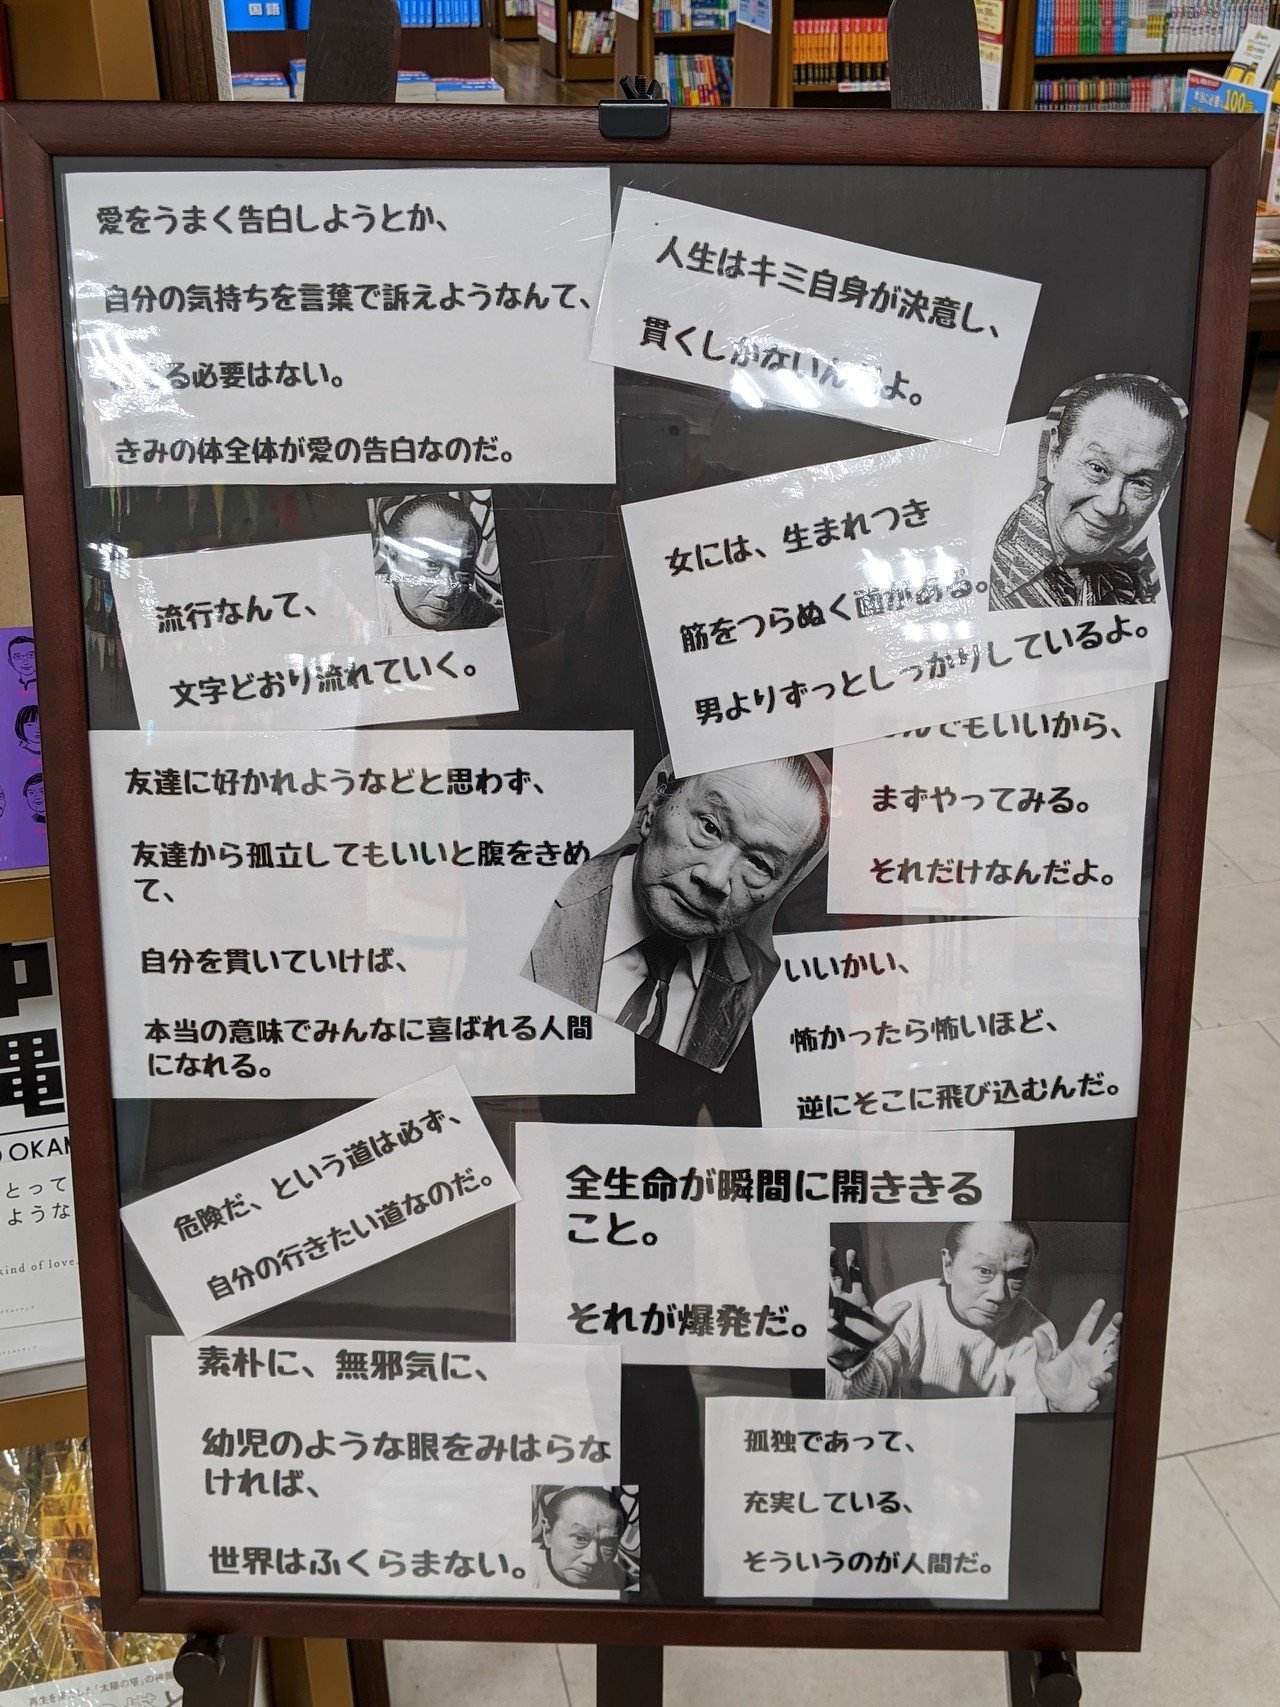 国語
100
愛をうまく告白しようとか、
自分の気持ちを言葉で訴えようなんて、
る必要はない。
きみの体全体が愛の告白なのだ。
人生はキミ自身が決意し、
貫くしかないん
よ。
流行なんて、
文字どおり流れていく。
女には、生まれつき
筋をつらぬく面がある。
男よりずっとしっかりしているよ。
んでもいいから、
まずやってみる。
それだけなんだよ。
友達に好かれようなどと思わず、
友達から孤立してもいいと腹をきめ
て、
自分を貫いていけば、
本当の意味でみんなに喜ばれる人間
になれる。
いいかい、
怖かったら怖いほど、
逆にそこに飛び込むんだ。
危険だ、という道は必ず、
自分の行きたい道なのだ。
全生命が瞬間に開ききる
こと。
それが爆発だ。
素朴に、無邪気に、
幼児のような眼をみはらな
ければ、
世界はふくらまない。
孤独であって、
充実している、
そういうのが人間だ。
沖
縄
OKAM
とって
ような
kind of love.
再生を果たした「太陽の塔」の神髄